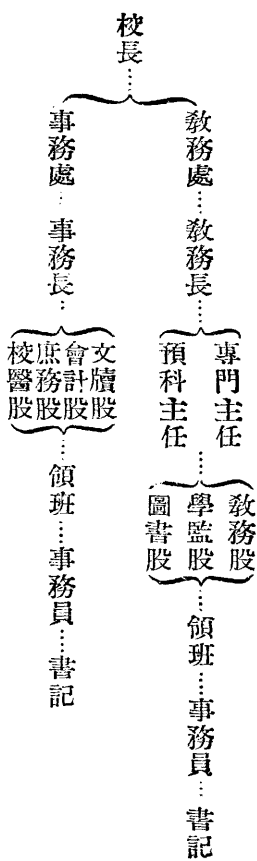 校長……
教務處……教務長……
專門主任
預科主任……
教務股
學監股
圖書股
……領班……事務員……書記
事務處…事務長…
文牘股
會計股
庶務股
校醫股
……領班……事務員……書記